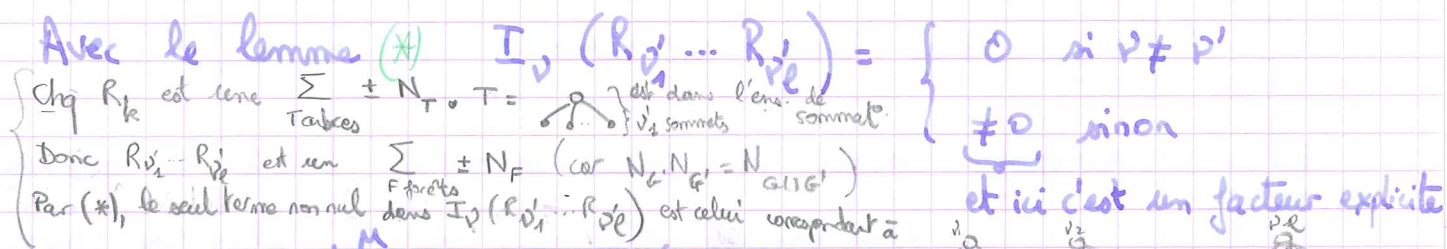 Avec le lemme (*) I_ν (R_ν'₁ ... R_ν'ℓ) = { 0 si ν ≠ ν'
≠ 0 sinon
et ici c'est un facteur explicite
Chq R_k est une Σ_{T arbres} ± N_T. T = } est dans l'ens. de sommat°
} ν'₁ sommets
Donc R_ν'₁ ... R_ν'ℓ est un Σ_{F forêts} ± N_F (car N_G . N_G' = N_{G⊔G'})
Par (*), le seul terme non nul dans I_ν (R_ν'₁ ... R_ν'ℓ) est celui correspondant à ν₁ ν₂ νℓ